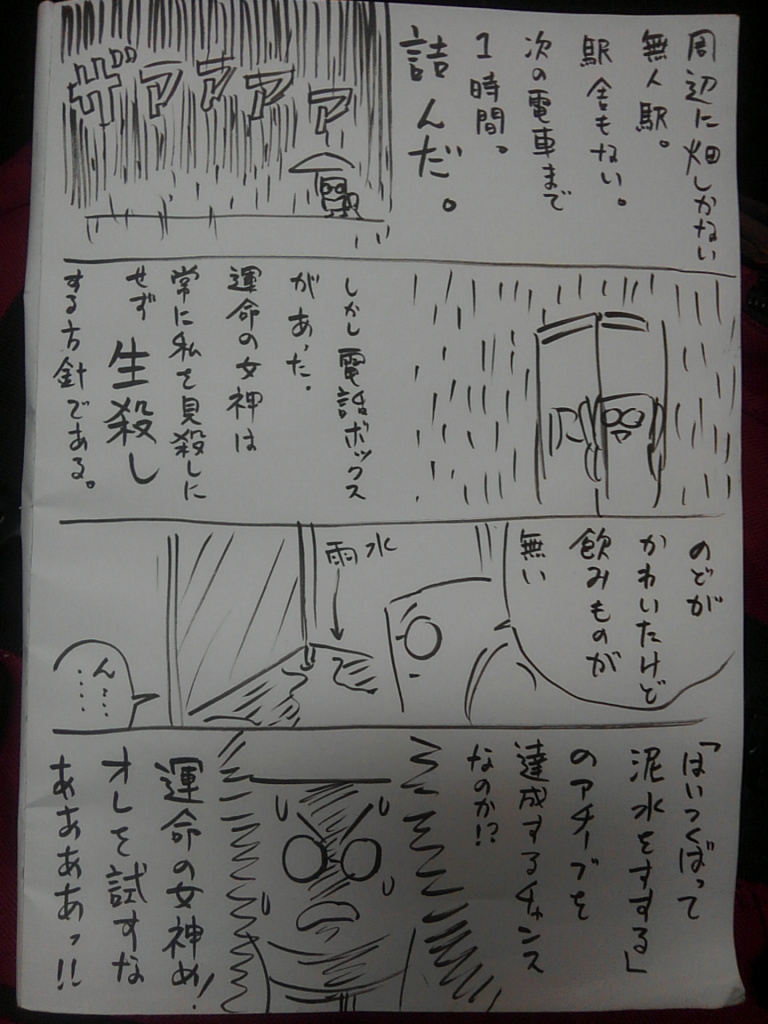 周辺に畑しかない
無人駅。
駅舎もない。
次の電車まで
1時間。
詰んだ。
ザアアアア
しかし電話ボックス
があった。
運命の女神は
常に私を見殺しに
せず生殺し
する方針である。
のどが
かわいたけど
飲みものが
無い
雨水
ん…
……
「はいつくばって
泥水をすする」
のアチーブを
達成するチャンス
なのか!?
運命の女神め!
オレを試すな
ああああっ!!